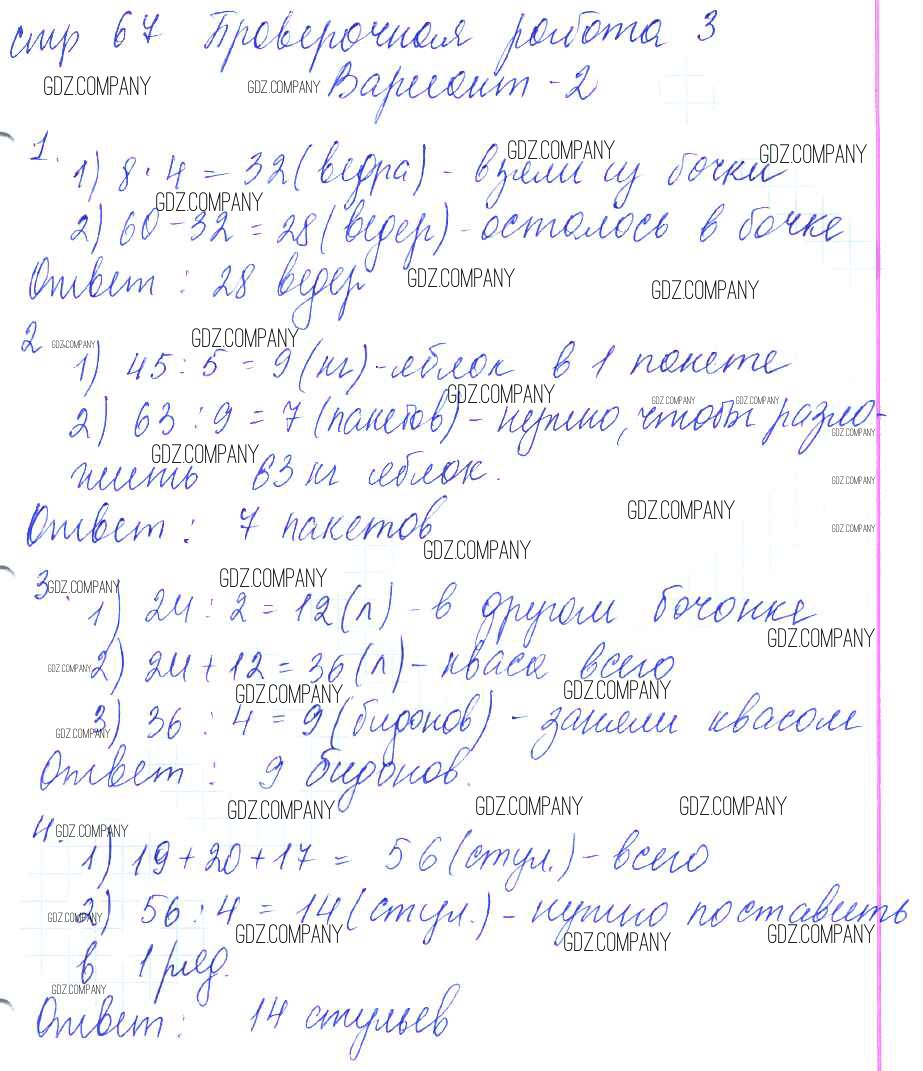 стр 67 Проверочная работа 3
GDZ.COMPANY GDZ.COMPANY Вариант - 2
1. GDZ.COMPANY GDZ.COMPANY
1) 8 · 4 = 32 (ведра) - взяли из бочки
GDZ.COMPANY
2) 60 - 32 = 28 (ведер) - осталось в бочке
Ответ : 28 ведер GDZ.COMPANY GDZ.COMPANY
2 GDZ.COMPANY GDZ.COMPANY
1) 45 : 5 = 9 (кг) - яблок в 1 пакете
GDZ.COMPANY GDZ.COMPANY GDZ.COMPANY
2) 63 : 9 = 7 (пакетов) - нужно, чтобы разло-
GDZ.COMPANY GDZ.COMPANY
жить 63 кг яблок. GDZ.COMPANY
Ответ : 7 пакетов GDZ.COMPANY GDZ.COMPANY
GDZ.COMPANY
3. GDZ.COMPANY GDZ.COMPANY
1) 24 : 2 = 12 (л) - в другом бочонке
GDZ.COMPANY
2) 24 + 12 = 36 (л) - кваса всего
GDZ.COMPANY GDZ.COMPANY GDZ.COMPANY
3) 36 : 4 = 9 (бидонов) - заняли квасом
GDZ.COMPANY
Ответ : 9 бидонов.
GDZ.COMPANY GDZ.COMPANY GDZ.COMPANY
4. GDZ.COMPANY
1) 19 + 20 + 17 = 56 (стул.) - всего
2) 56 : 4 = 14 (стул.) - нужно поставить
GDZ.COMPANY GDZ.COMPANY GDZ.COMPANY GDZ.COMPANY
в 1 ряд.
GDZ.COMPANY
Ответ : 14 стульев